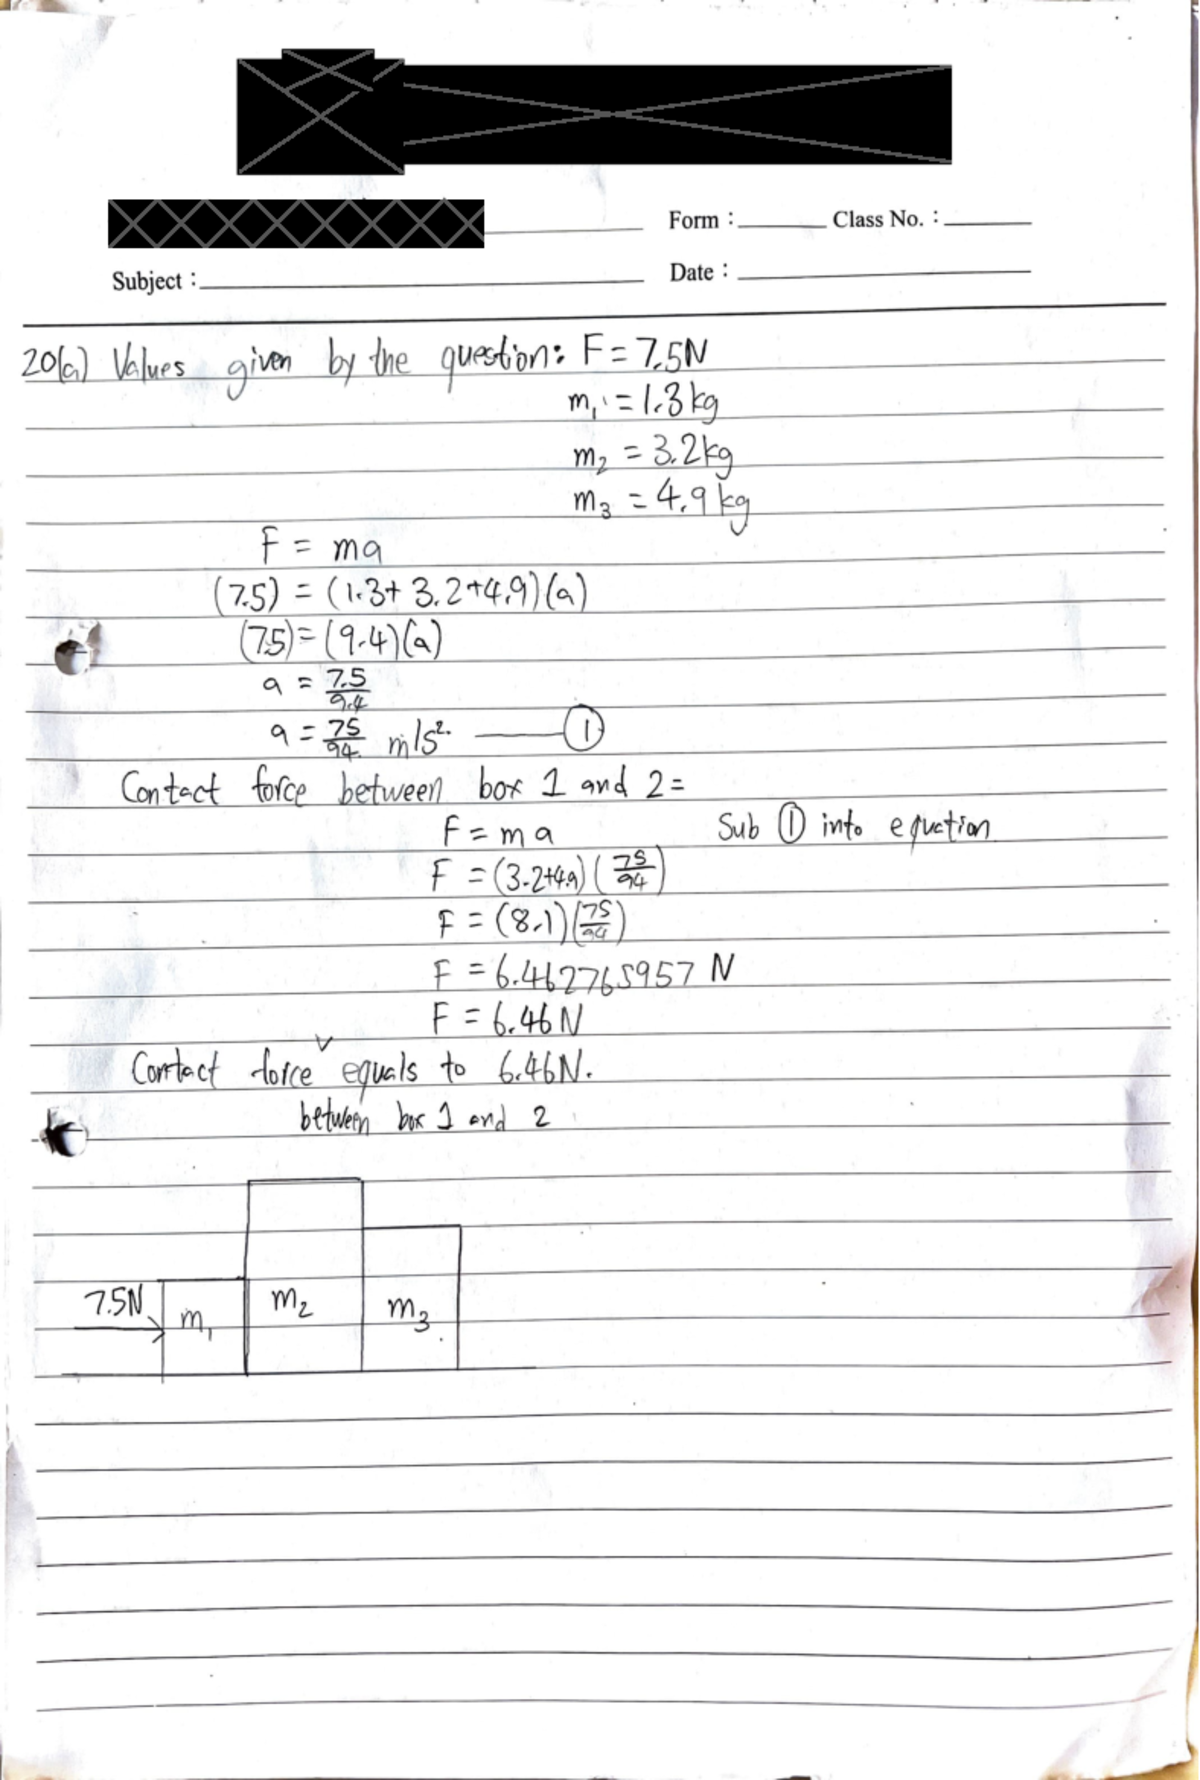 Form : Class No. :
Subject : Date :
20(a) Values given by the question: F = 7.5N
m₁ = 1.3kg
m₂ = 3.2kg
m₃ = 4.9kg
F = ma
(7.5) = (1.3+3.2+4.9)(a)
(7.5) = (9.4)(a)
a = 7.5/9.4
a = 75/94 m/s². ——— ①
Contact force between box 1 and 2 =
F = ma Sub ① into equation
F = (3.2+4.9)(75/94)
F = (8.1)(75/94)
F = 6.462765957 N
F = 6.46N
Contact force ∨ equals to 6.46N.
between box 1 and 2
7.5N m₁ m₂ m₃